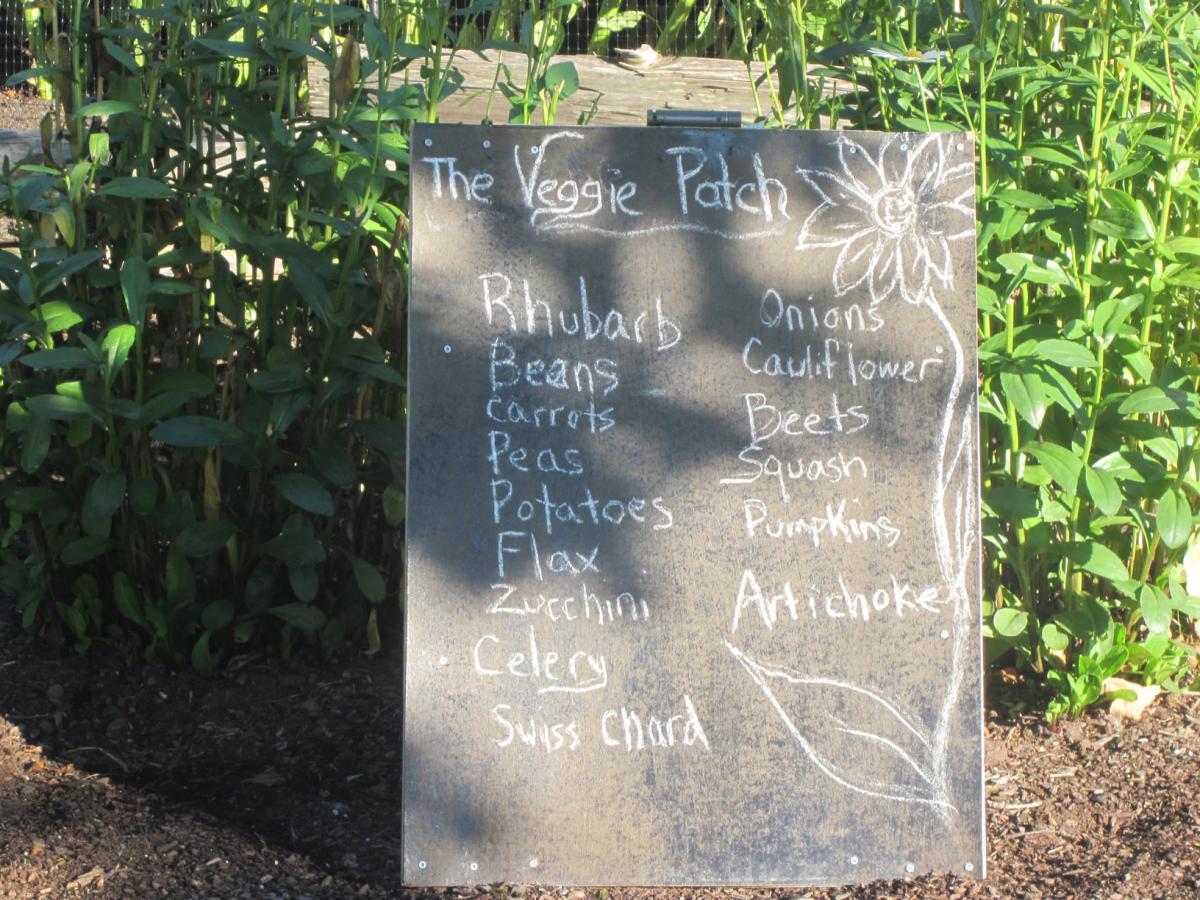 The Veggie Patch
Rhubarb
Beans
carrots
Peas
Potatoes
Flax
Zucchini
Celery
Swiss Chard
Onions
Cauliflower
Beets
Squash
Pumpkins
Artichokes